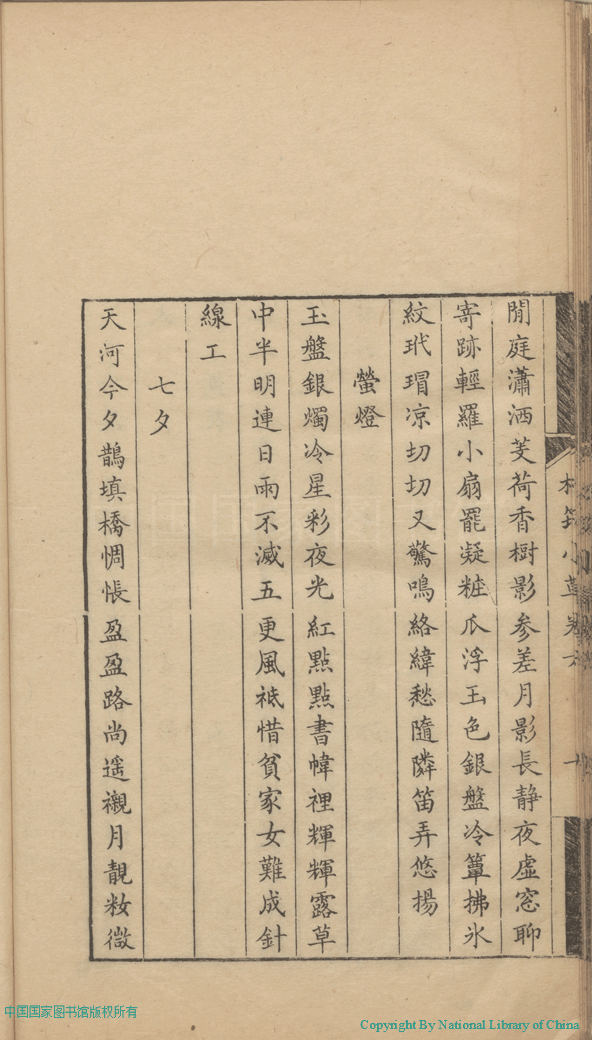 閒庭瀟洒芰荷香樹影参差月影長静夜虚窓聊
寄跡輕羅小扇罷凝粧瓜浮玉色銀盤冷簟拂氷
紋玳瑁凉切切又驚鳴絡緯愁隨隣笛弄悠揚
螢燈
玉盤銀燭冷星彩夜光紅點點書幃裡輝輝露草
中半明連日雨不滅五更風祗惜貧家女難成針
線工
七夕
天河今夕鵲填橋惆悵盈盈路尚遥襯月靚妝微
中国国家图书馆版权所有
Copyright By National Library of China